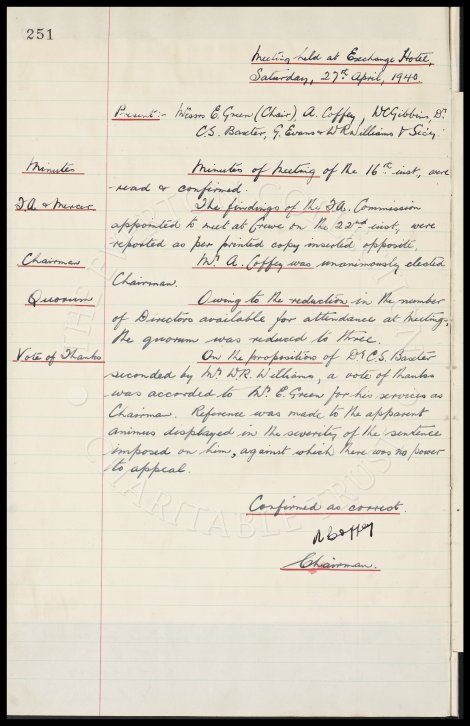 251
Meeting held at Exchange Hotel,
Saturday, 27th April, 1940.
Present:- Messrs E. Green (Chair) A. Coffey, W.C. Gibbins, Dr
C.S. Baxter, G. Evans & W.R. Williams & Secy.
Minutes
Minutes of Meeting of the 16th inst, were
read & confirmed.
F.A. & Mercer
The findings of the F.A. Commission
appointed to meet at Crewe on the 22nd inst, were
reported as per printed copy inserted opposite.
Chairman
Mr A. Coffey was unanimously elected
Chairman.
Quorum
Owing to the reduction in the number
of Directors available for attendance at Meetings,
the quorum was reduced to three.
Vote of Thanks
On the proposition of Dr C.S. Baxter
seconded by Mr W.R. Williams, a vote of thanks
was accorded to Mr E. Green for his services as
Chairman. Reference was made to the apparent
animus displayed in the severity of the sentence
imposed on him, against which there was no power
to appeal.
Confirmed as correct.
A Coffey
Chairman.
CHARITABLE TRUST